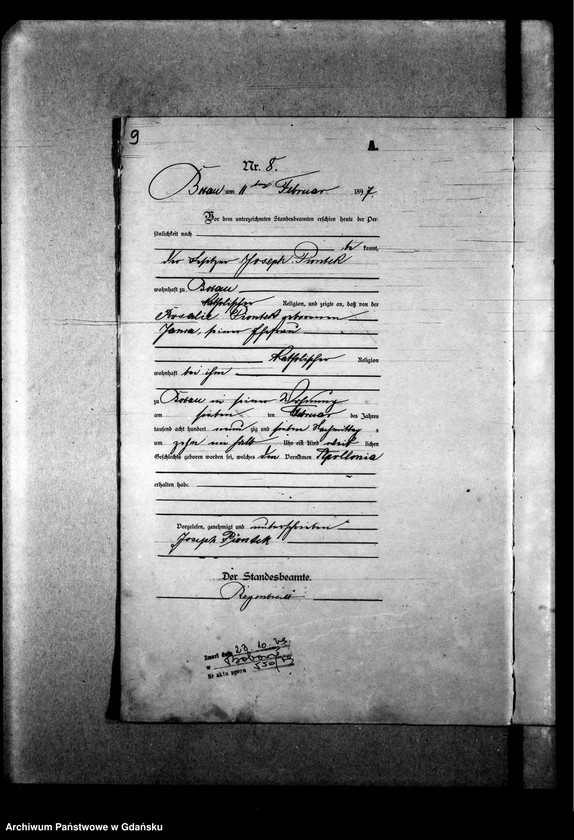 9
A.
Nr. 8.
Bosau am 11 ten Februar 1897.
Vor dem unterzeichneten Standesbeamten erschien heute der Per-
sönlichkeit nach
be kannt,
der Besitzer Joseph Piontek
wohnhaft zu Bosau
katholischer Religion, und zeigte an, daß von der
Rosalie Piontek geborenen
seiner Ehefrau
katholischer Religion
wohnhaft bei ihm
zu Bosau in seiner Wohnung
am sieben ten Februar des Jahres
tausend acht hundert neun zig und sieben Nachmittag s
um zehn ein halb Uhr ein Kind weib lichen
Geschlechts geboren worden sei, welches den Vornamen Apollonia
erhalten habe.
Vorgelesen, genehmigt und unterschrieben
Joseph Piontek
Der Standesbeamte.
Zmarł dnia 23. 10.
w
Nr aktu zgonu
Archiwum Państwowe w Gdańsku